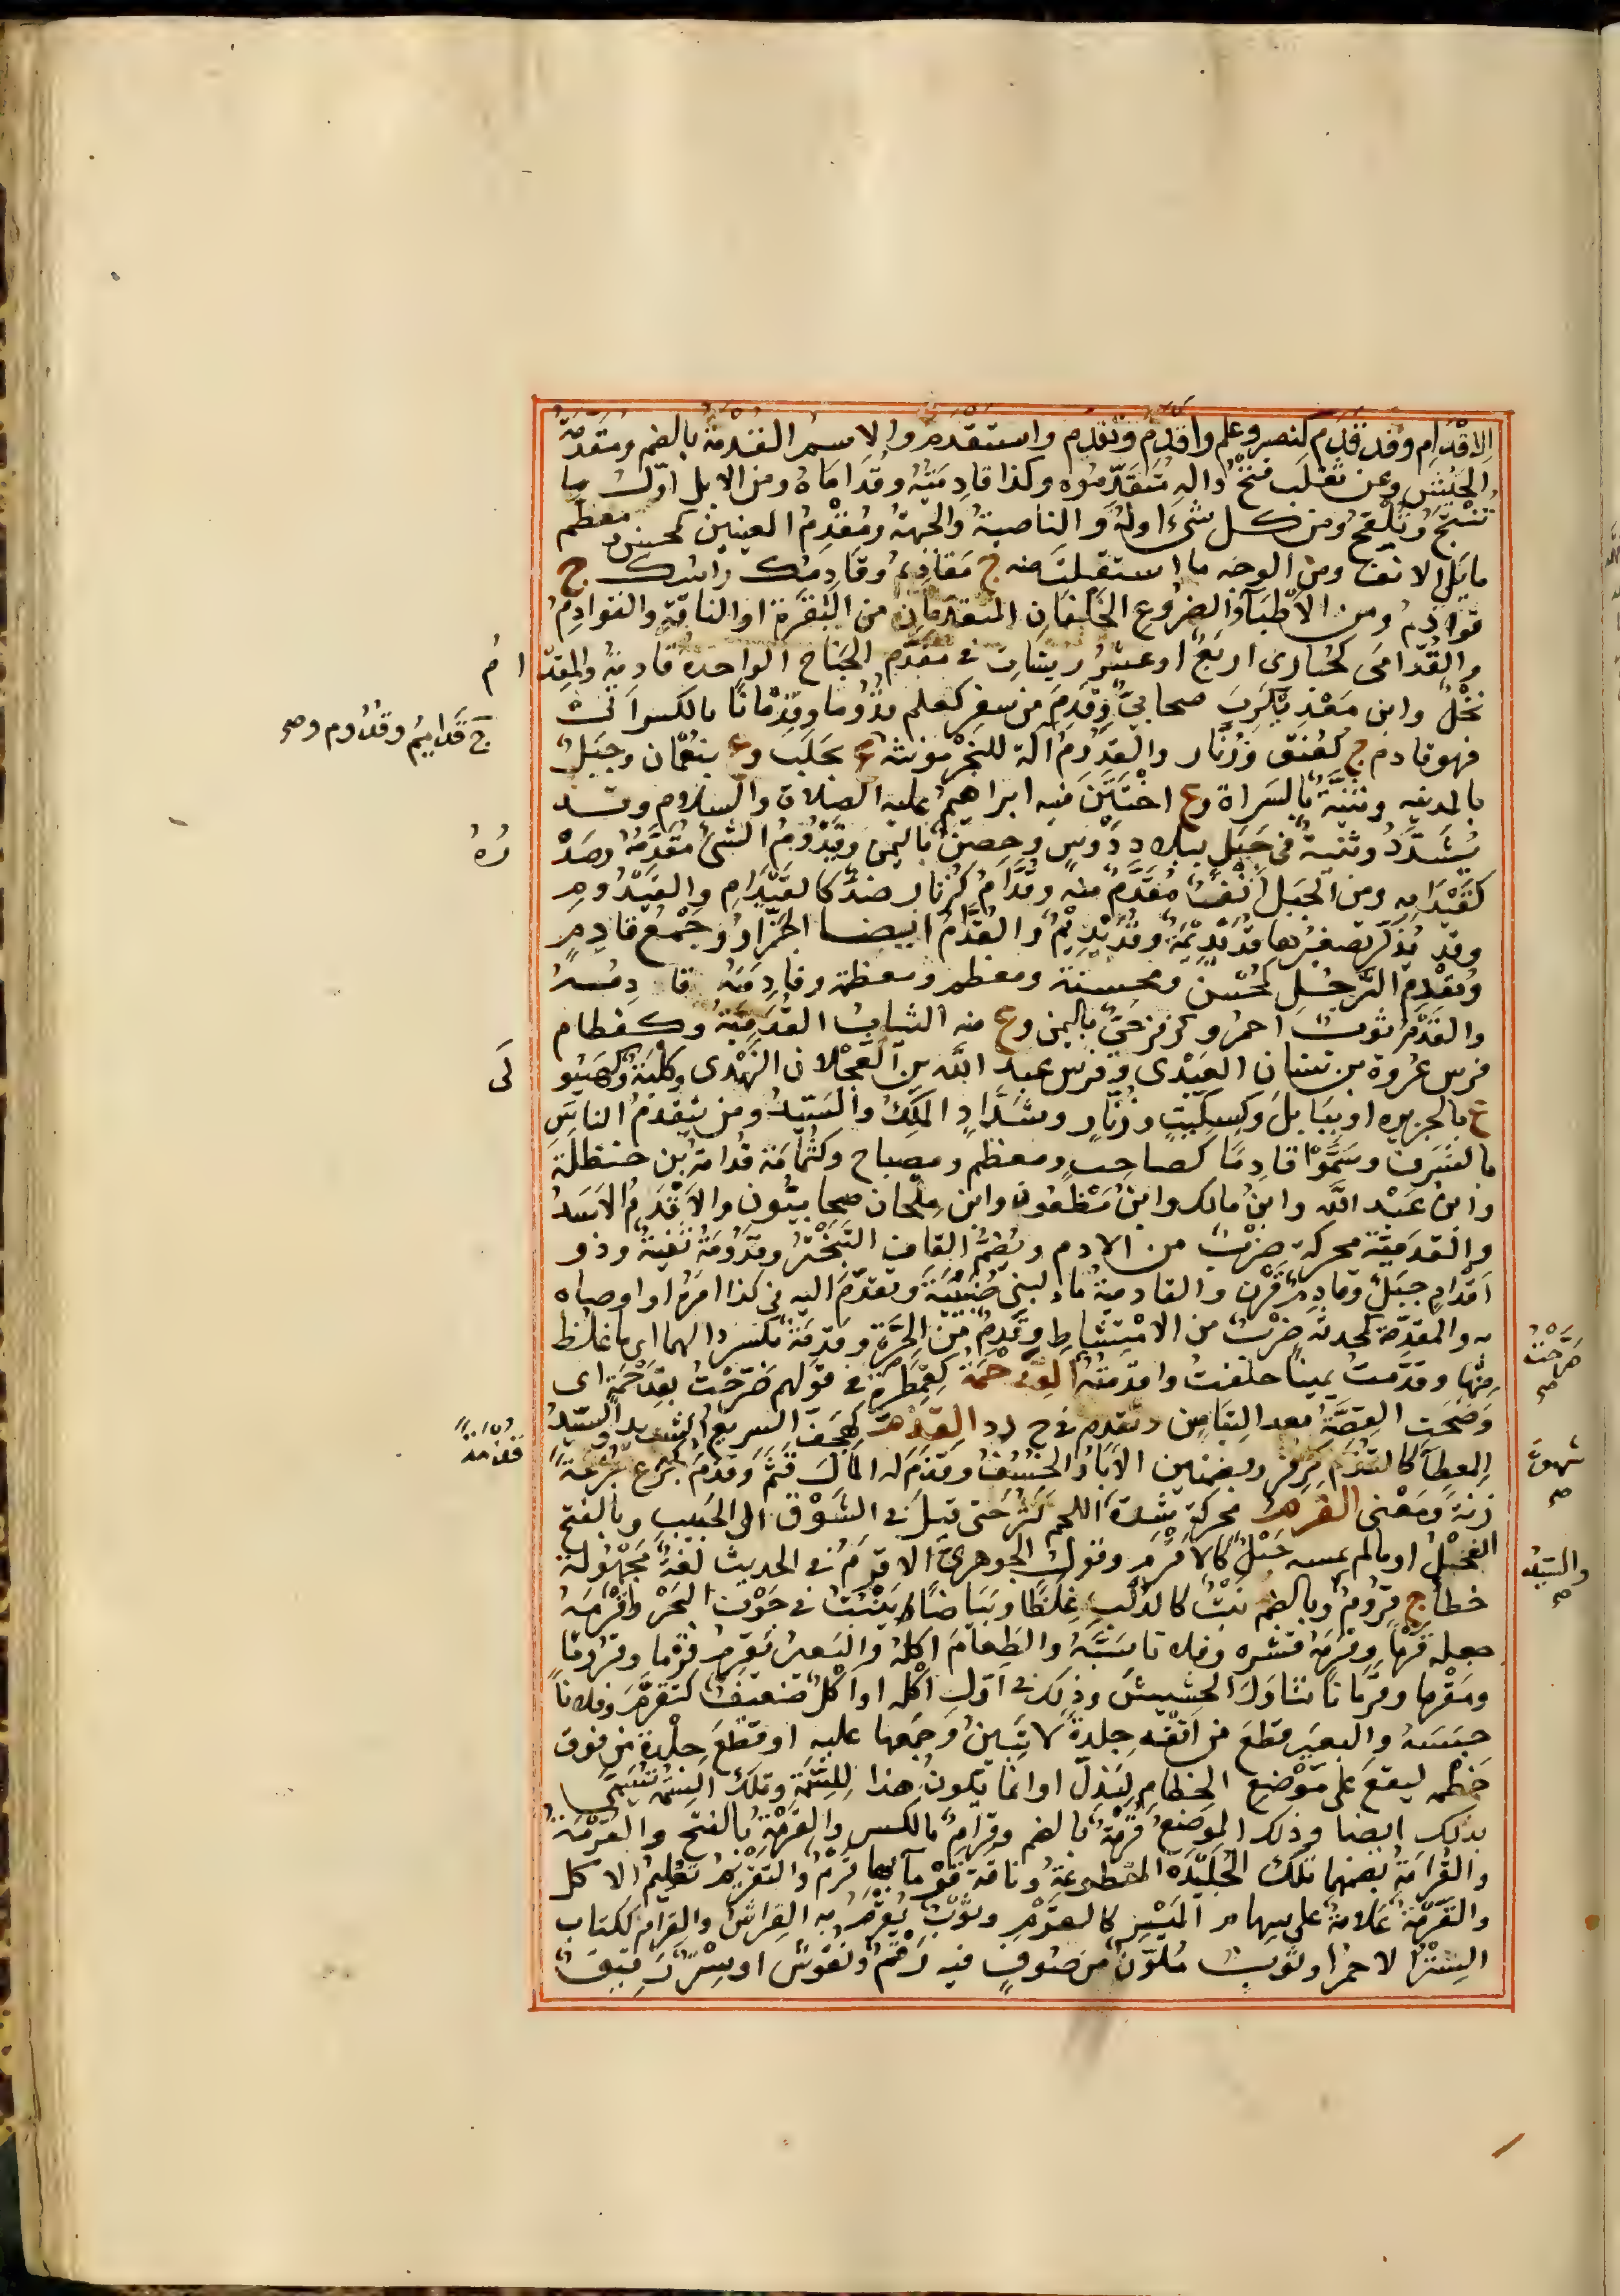 الاقْدَامِ وقد قَدَم كنصر وعلم وأقدم وتقدم واستقدم والاسم القُدْمَة بالضم ومُقَدِّمَةُ
الجَيْش وعن ثعلب فتح داله مُتَقَدِّمُوه وكذا قادِمَتُه وقُدَاماهُ ومن الابل اوّلُ ما
تُنْتَجُ وتَلْقَحُ ومن كل شيء اولهُ والناصيةُ والجبهةُ ومُقْدِمُ العينين كمحسن ومعظم
ما يلي الانف ومن الوجه ما استقبلتَ منه ج مَقادِيمُ وقادِمُك راسُك ج
قوادِمُ ومن الأطْبَاءِ والضُروعِ الخِلْفانِ المتقدمانِ من البَقَرَة او الناقةِ والقوادِمُ
والقُدَامَى كحُبارى اربعُ او عشرُ ريشاتٍ في مقدّم الجَناح الواحدة قادمة والمقدا
م
نَخْلٌ وابن مَعْدِيكَرِبَ صحابيٌّ وقَدِمَ من سفر كعلم قُدُومًا وقِدْمَانًا بالكسر آبَ
فهو قادم ج كعُنُق وزُنَّار والقَدُومُ آلة للنجر مؤنثة ج
قَدَائِمُ وقُدُوم وصح
ة بحَلَب وع بنَعْمان وجَبَلٌ
بالمدينة وثنيَّةٌ بالسَراة وع اخْتَتَنَ فيه ابراهيمُ عليه الصلاة والسلام وقد
يُشَدَّدُ وثنيةٌ في جَبَلٍ ببلاد دَوْسٍ وحِصنٌ باليمن وقَيْدُومُ الشئِ مُقَدَّمُهُ وصَدْ
رُهُ
كقَيْدَامِهِ ومن الجَبَلِ انْفٌ مُقَدَّمٌ منه وقُدَّامُ كزنار ضدُّ كالقَيْدَامِ والقَيْدُومِ
وقد يُذَكَّر تصغيرها قُدَيْدِيمَةٌ وقُدَيْدِيمٌ والقُدَّامُ ايضا الجَزَّارُ وجَمْعُ قادِمٍ
ومُقْدِمُ الرَّحْلِ كمُحْسِنٍ ومحسنة ومعظم ومعظمة وقادِمَتُه قا دِمُهُ
والقَدْمُ ثوبٌ احمرُ وكزفر حَيٌّ باليمن وع منه الثيابُ القُدَمِيَّةُ وكقطام
فرس عُرْوة بن سِنان العَبْدِى وفرس عبد الله بن العَجْلان النَهْدى وكلبَةٌ وكهَيُو
لَى
ع بالجزيره او ببَابِلَ وكسِكِّيتٍ وزُنَّارٍ وشَدَّادٍ المَلِكُ والسَيِّدُ ومن يَتَقَدمُ الناسَ
بالشرف وسَمَّوْا قادِمًا كصاحِبٍ ومعظم ومصباح وكثُمَامَةَ قُدامةُ بن حنظلَةَ
وابن عَبْد الله وابن مالك وابن مَظْعُون وابن مِلْحان صحابيُّون والأَقْدَمُ الاسدُ
والقَدَمِيَّة محركة ضَرْبٌ من الادم وبضمّ القاف التَبَخْتُرُ وقَدُومَةُ ثَنِيَّةٌ وذو
اَقْدَامٍ جَبَلٌ وقادِمُ قَرْنٌ والقادمةُ ماء لبني ضُبَيْنَةَ وتقدّم اليه في كذا امَرَهُ او اوصاه
به والمقدِّمة كمحدثة ضَرْبٌ من الامْتِشاط وقَدِمٌ من الحَرَّة وقَدِمَةٌ بكسر دالهما اى ما غلظ
منها وقَدَّمتُ يمينًا حلفتُ واقدمتُه القِدَّحْمَةُ كقِمَطْرَة في قولهم صَرَّحَتْ بِقِدَّحْمَةٍ اى
صَرَّحَتْ
صح
وَضَحَت القِصَّةُ بعد التِباسٍ وتقدم في ج د د القَذَمّ كهِجَفّ السريع الشديد والسَيِّدُ
المِعطاء كالقُذَم كزفر وبضمتين الآبارُ الخُسُفُ وقَذَم له المالَ قَثَمَ وقَذِمَ جَرِعَ جُرْعَةً
قُذْمَةً
زنةً ومَعْنى القَرَم محركة شِدَّةُ
شهوة
صح
اللحم كثر حتى قيل في الشَوْق الى الحَبيب وبالفتح
الفَحْلُ او ما لم يمسه حَبْلٌ كالاَقْرَم
والسَيِّدُ
صح
وقول الجوهرى الاقرَمُ في الحديث لغةٌ مَجْهُولة
خطأ ج قُرُومٌ وبالضم نَبْتٌ كالدُلْبِ غِلَظًا وبَيَاضًا يَنْبُتُ في جَوْف البَحْر واقْرَمَهُ
جعله قَرْمًا وقَرَمَهُ قشره وفلانا سَبَّهُ والطعامَ اكلهُ والبَعيرُ يَقْرِمُ قَرْمًا وقُرُومًا
ومَقْرَمًا وقَرَمانًا تناوَلَ الحشيشَ وذلك في اَوّلِ اَكْلِه او اَكْلٌ ضعيفٌ كتَقَرَّمَ وفلانًا
حبسه والبعيرَ قطعَ من اَنْفِه جِلدةً لا تَبِينُ وجَمَعَها عليه او قَطَعَ جِلْدةً من فوق
خَطْمه ليقعَ على مَوْضع الخِطامِ ليَذِلَّ او انما يكونُ هذا للسِمَة وتلك السِمَةُ تُسَمَّى
بذلك ايضا وذلك الموضعُ قُرْمَةٌ بالضم وقِرَامٌ بالكسر والقَرْمَةُ بالفتح والقُرْمَةُ
والقُرَامَةُ بضمهما تلك الجُلَيْدَة المقطوعةُ وناقة قَرْمَاءُ بها قَرْمٌ والتَقْرِيمُ تعليمُ الاكل
والقَرْمَةُ عَلامةٌ على سِهام المَيْسِرِ كالقَرْمِ وثَوْبٌ يُقْرَمُ به الفِراشُ والقِرَام ككتاب
السِتْرُ الاحمرُ او ثوبٌ مُلَوَّنٌ من صُوفٍ فيه رَقْمٌ ونُقُوشٌ او سِتْرٌ رَقيقٌ